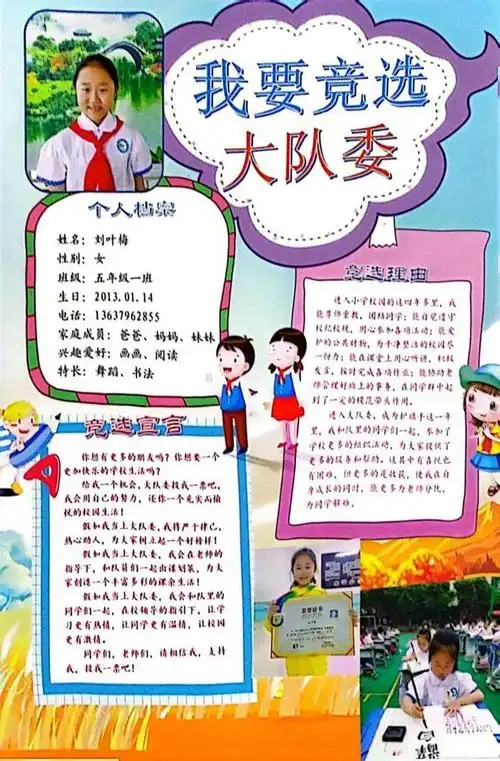 我要竞选
大队委
个人档案
姓名：刘叶梅
性别：女
班级：五年级一班
生日：2013.01.14
电话：13637962855
家庭成员：爸爸、妈妈、妹妹
兴趣爱好：画画、阅读
特长：舞蹈、书法
竞选理由
进入小学校园的这四年多里，我
能尊师重教，团结同学；能自觉遵守
校纪校规，用心参加各项活动；能爱
护的公共财物，为干净整洁的校园尽
一份力；能在课堂上用心听讲，积极
发言，按时完成各项作业；能协助老
师管理好班上的事务，在同学群中起
到了一定的模范带头作用。
进入大队委，成为护旗手这一年
里，我和队里的同学们一起，参加了
学校更多的组织活动，为大家提供了
更多的服务和帮助，这其中有喜悦也
有困难，但更多的是收获，使我在自
身成长的同时，能更多为老师分忧，
为同学解难。
竞选宣言
你想有更多的朋友吗？你想要一个
更加快乐的学校生活吗？
给我一个机会，大队委投我一票吧，
我会用自己的努力，还你一个充实而愉
悦的校园生活！
假如我当上大队委，我将严于律己，
热心助人，为大家树立起一个好榜样！
假如我当上大队委，我会在老师的
指导下，和队员们一起出谋划策，为大
家创造一个丰富多彩的课余生活！
假如我当上大队委，我会和队里的
同学们一起，在校领导的指引下，让学
习更有热情，让同学更有温情，让校园
更有激情。
同学们，老师们，请相信我，支持
我，投我一票吧！
荣誉证书